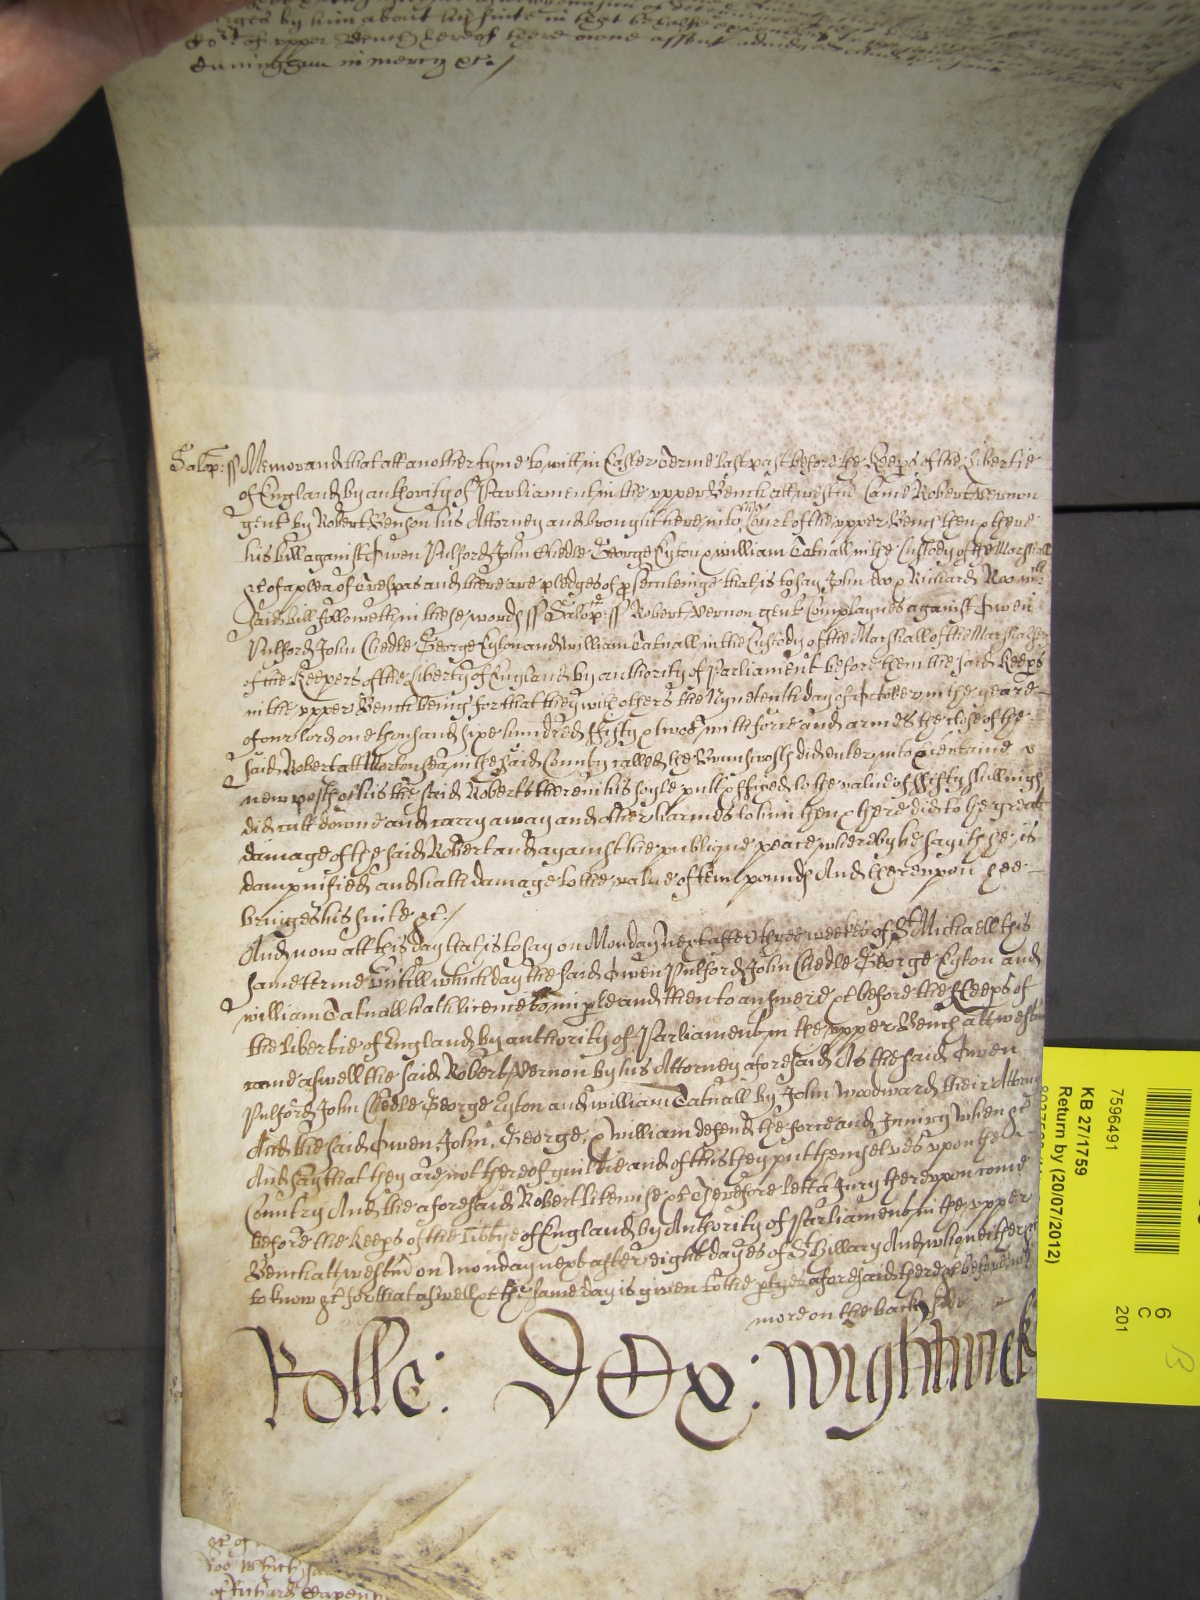 of upper Bench hereof there owne assent
in mercy &c:/
Salop: ss Memorand that att another tyme to witt in Easter Terme last past before the Keeps of the Libertie
of England by authority of Parliament in the upper Bench att westm Came Robert Vernon
gent by Robert Benson his Attorney and brought here into the Court of the upper Bench then & there
his bill against Owen Pulford John Cliedle George Eyton & william Tatnall in the Custody of the Marshall
&c of a plea of Trespas and there are pledges of psecuteinge that is to say John Doo & Richard Roo wch
said bill followeth in these words ss Salop: ss Robert Vernon gent Complaynes against Owen
Pulford John Cliedle George Eyton and william Tatnall in the Custody of the Marshall of the Marshalsey
of the Keepers of the Liberty of England by authority of Parliament before them the said Keeps
in the upper Bench being for that they with others the Nynetenth day of October in the yeare
of our lord one thousand sixe hundred fifty & twoe with force and armes the close of the
said Robert att in the said County called the did enter into &
new posts of his the said Roberts there in his soyle putt & ffixed to the value of ffifty shillings
did cutt downe and carry away and other harmes to him then & there did to the great
damage of the said Robert and against the publique peace whereby he sayth he is
dampnified and hath damage to the value of tenn pounds And thereupon hee
bringes his suite &c:/
And now att this day that is to say on Monday next after three weekes of St Michaell this
same terme Untill which day the said Owen Pulford John Cliedle George Eyton and
william Tatnall hath licence to imple and then to answere &c before the Keeps of
the libertie of England by authority of Parliament in the upper Bench att westm
came aswell the said Robert Vernon by his Attorney aforesaid As the said Owen
Pulford John Cliedle George Eyton and william Tatnall by John Woodward their Attorney
And the said Owen, John, George, & William defend the force and Iniury when &c
And say that they are not thereof guiltie and of this they put themselves upon the
Country And the aforesaid Robert likewise &c Therefore lett a Jury thereupon come
before the Keeps of the Libtye of England by Authority of Parliament in the upper
Bench att westm on Monday next after eight dayes of St Hillary And who neither &c
to know &c for that aswell &c the same day is given to the ptyes aforesaid there &c before
more on the back side
Rolle: DOx: Wightwick
&c of
Roo Which
of Richard
7596491
KB 27/1759
Return by (20/07/2012)
6
C
201